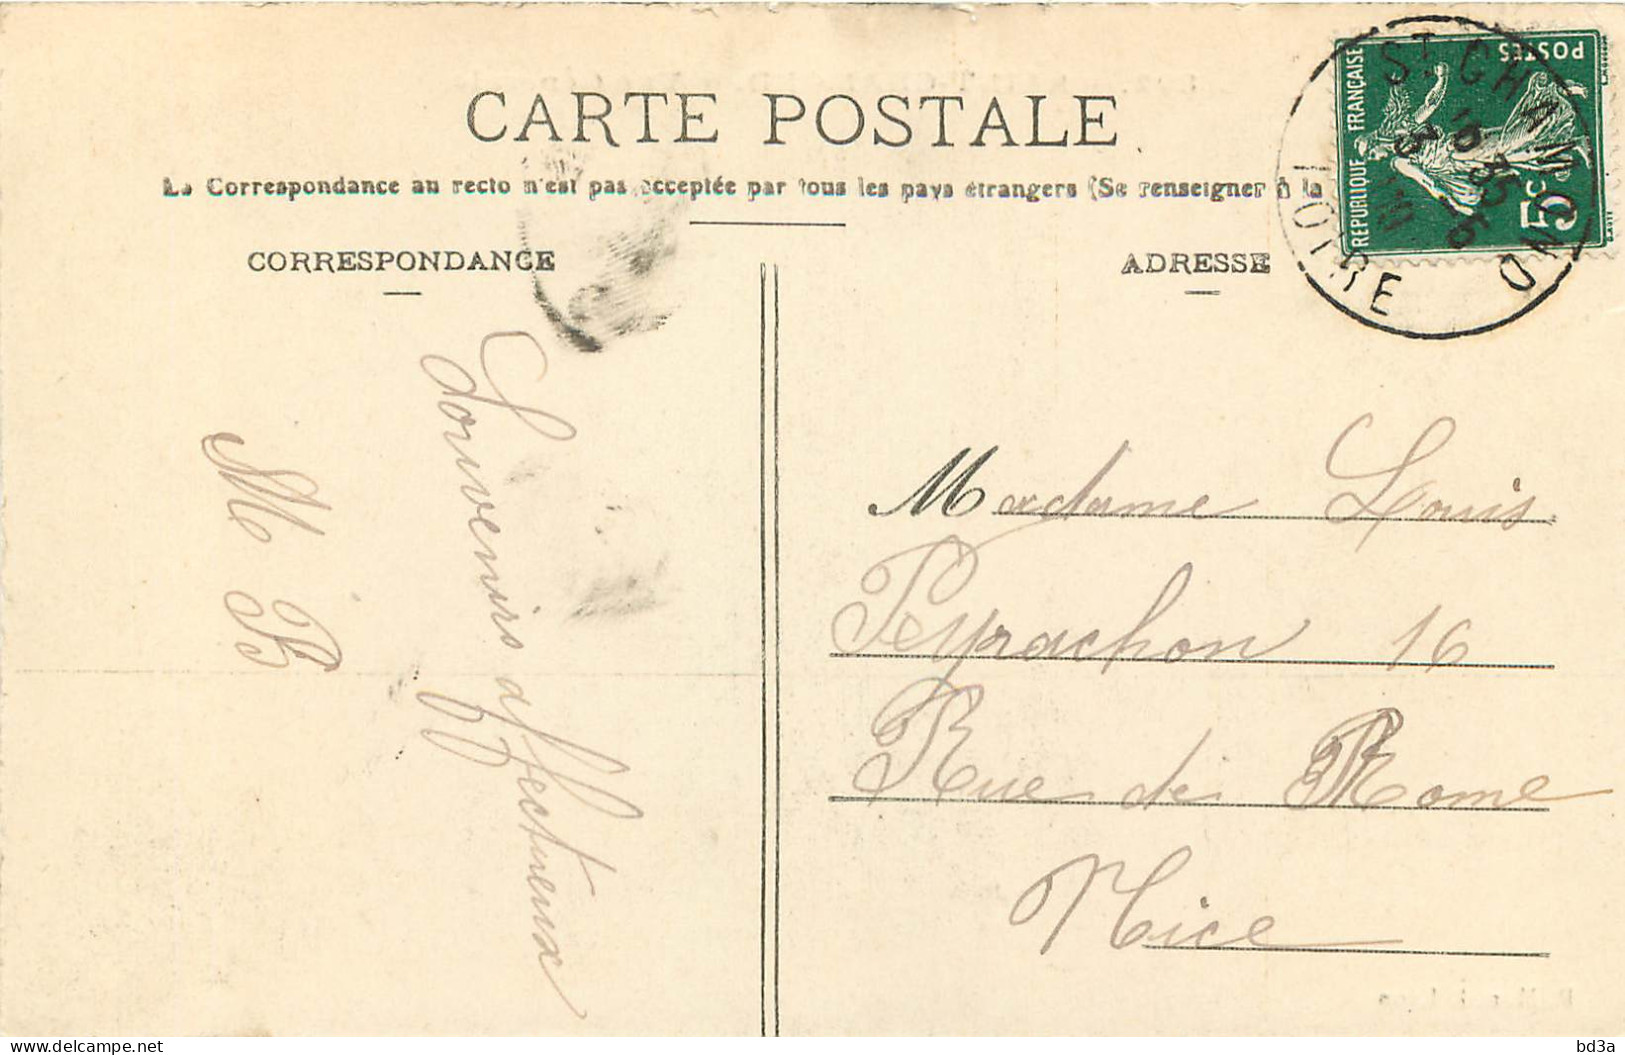 CARTE POSTALE
La Correspondance au recto n'est pas acceptée par tous les pays étrangers (Se renseigner à la
CORRESPONDANCE
ADRESSE
REPUBLIQUE FRANÇAISE
POSTES
5c
ST CHAMOND
LOIRE
Souvenirs affectueux
M B
Madame Louis
Peyrachon 16
Rue de Rome
Nice
delcampe.net
bd3a